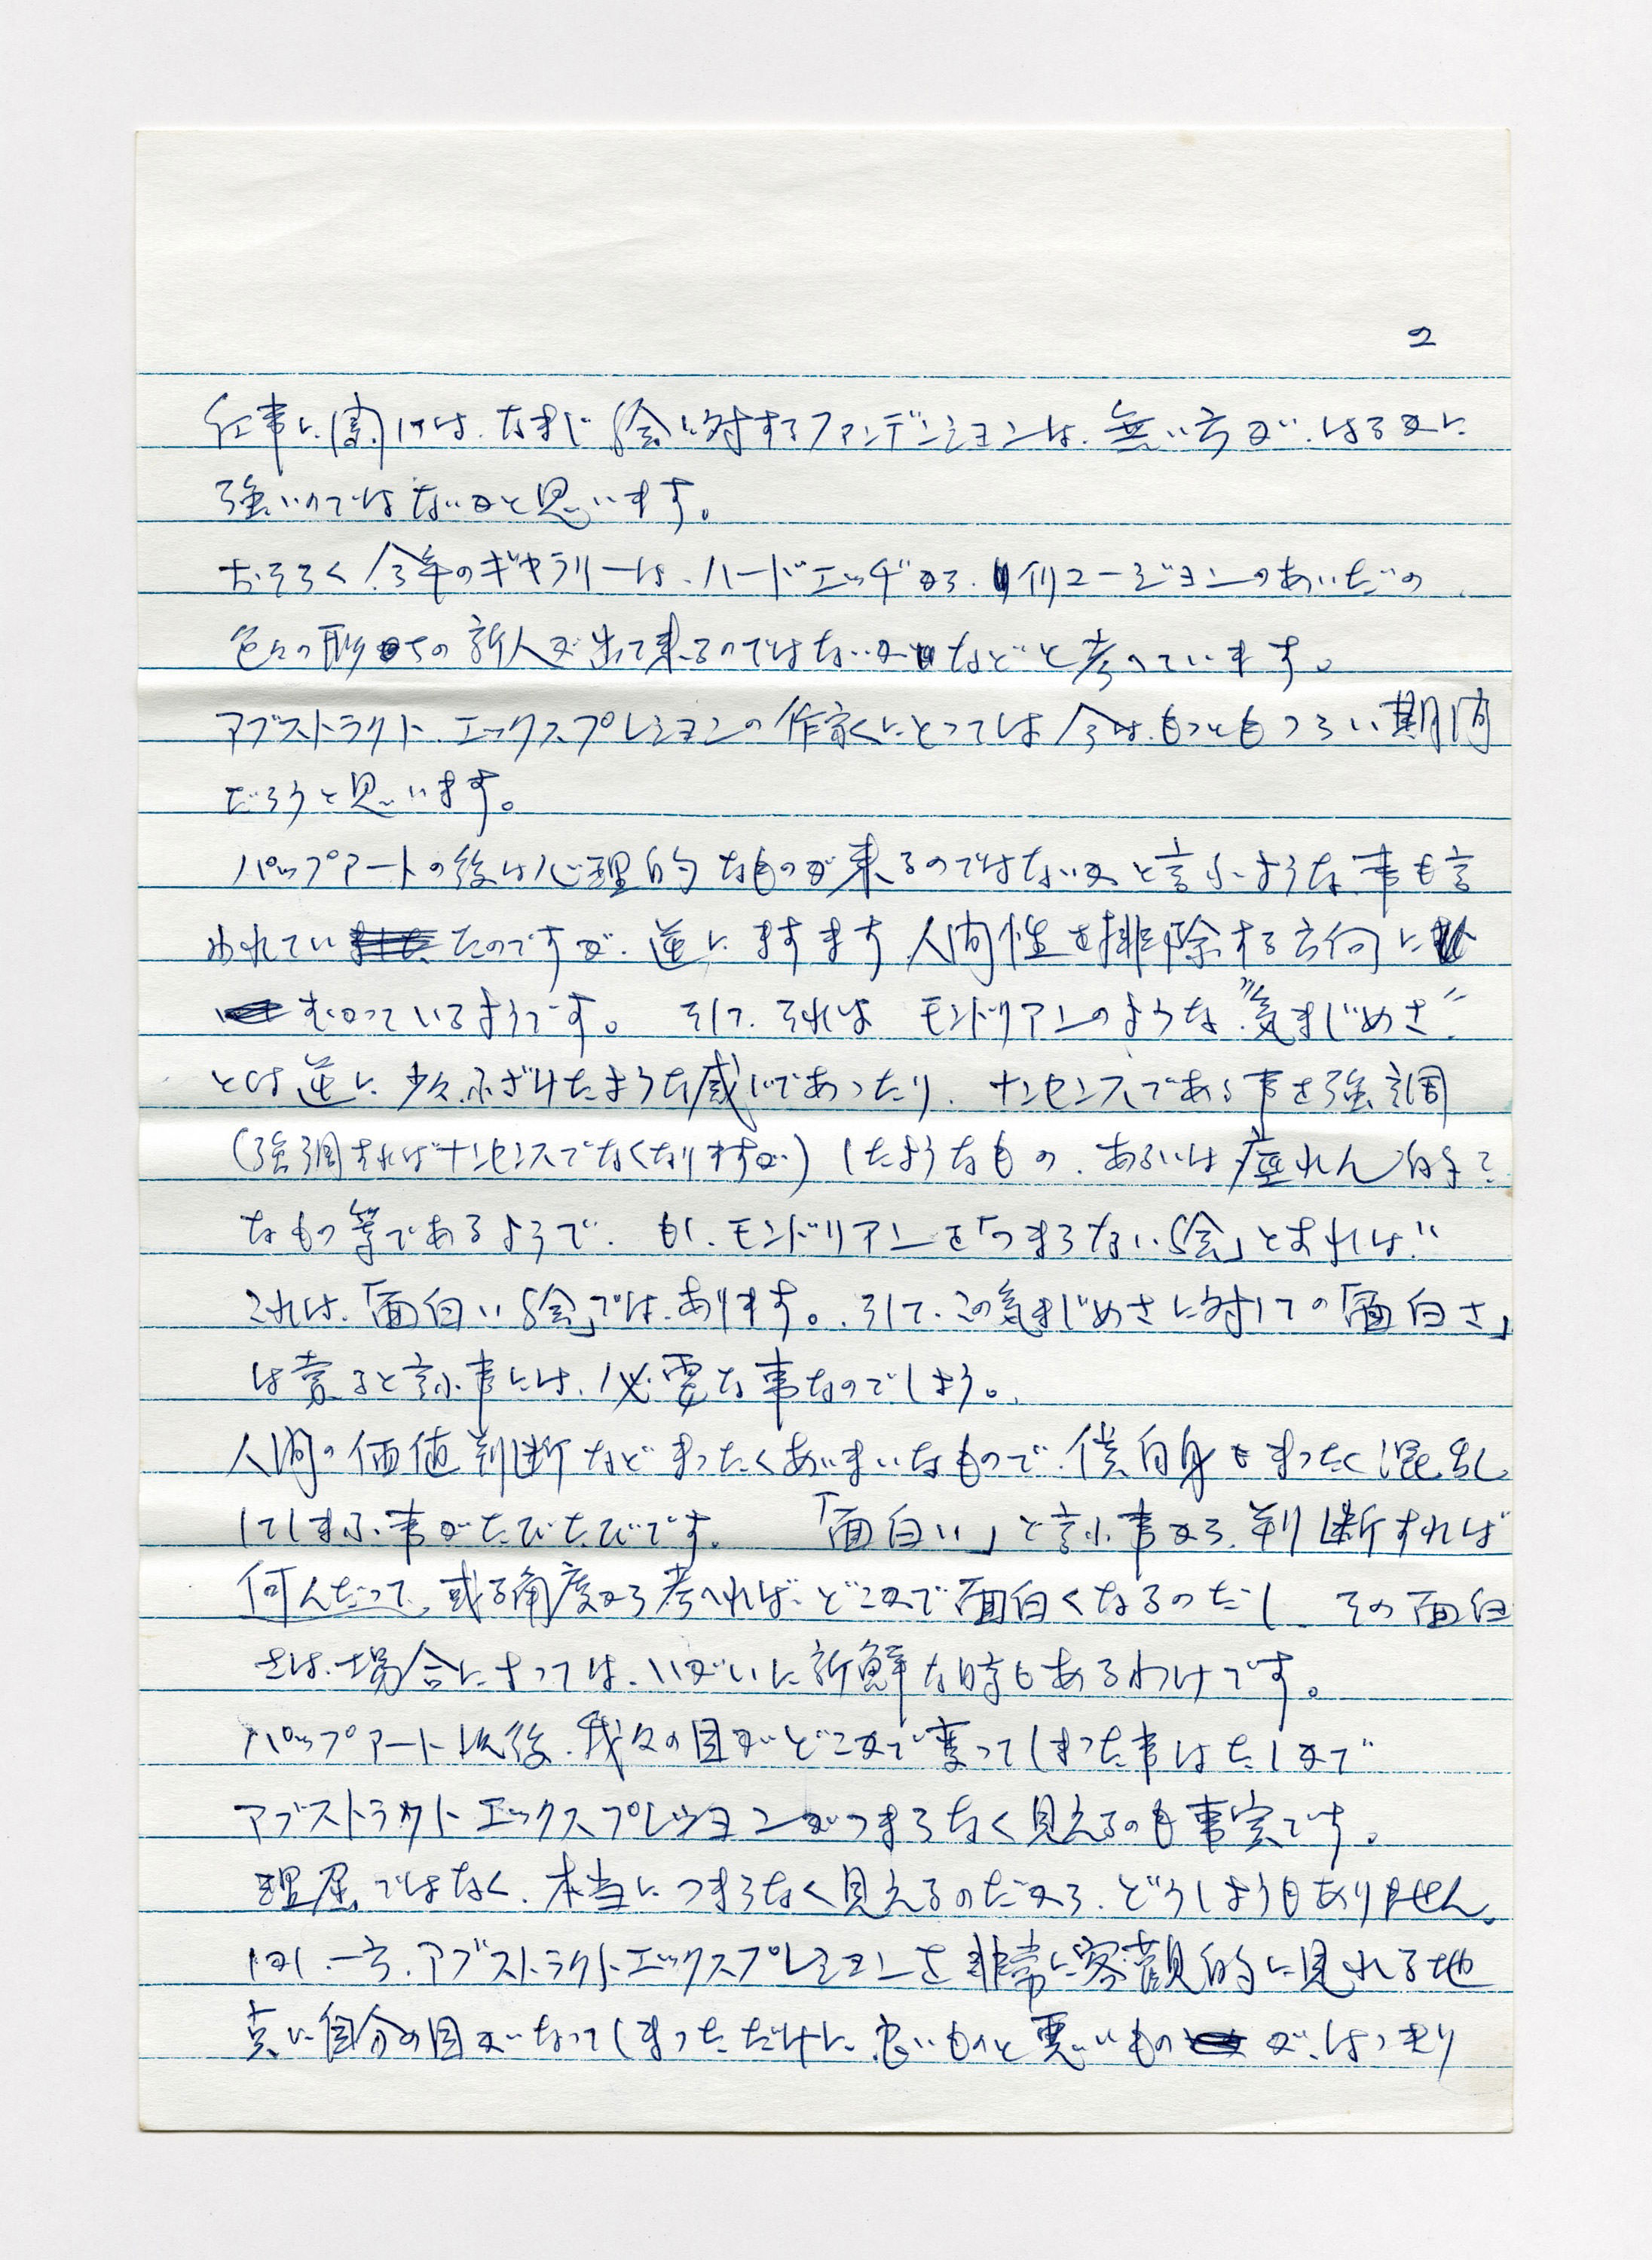 2
仕事に関しては、なまじ絵に対するファンデンションは、無い方が、はるかに
強いのではないかと思います。
おそらく今年のギャラリーは、ハードエッヂから、イリュージョンのあいだの
色々の形の新人が出て来るのではないかなどと考へています。
アブストラクト エックスプレションの作家にとっては今は、もっともつらい期間
だろうと思います。
パップアートの後は心理的なものが来るのではないかと言ふような事も言
われていたのですが、逆にますます人間性を排除する方向に
むかっているようです。 そして、それは モンドリアンのような〝気まじめさ〟
とは逆に少々ふざけたような感じであったり、ナンセンスである事を強調
(強調すればナンセンスでなくなりますが)したようなもの、あるいは痙れん的?
なもの等であるようで、もし、モンドリアンを「つまらない絵」とすれば、
これは、「面白い絵」では、あります。そして、この気まじめさに対しての「面白さ」
は売ると言ふ事には、必要な事なのでしょう。
人間の価値判断などまったくあいまいなもので、僕自身もまったく混乱
してしまふ事がたびたびです。 「面白い」と言ふ事から、判断すれば
何んだって、或る角度から考へれば、どこかで面白くなるのだし その面白
さは、場合によっては、いがいに新鮮な時もあるわけです。
パップアート以後、我々の目がどこかで変ってしまった事はたしかで
アブストラクトエックスプレッションがつまらなく見えるのも事実です。
理屈ではなく、本当につまらなく見えるのだから、どうしようもありません。
しかし、一方、アブストラクトエックスプレションを非常に客観的に見れる地
点に自分の目がなってしまっただけに、良いものと悪いものが、はっきり